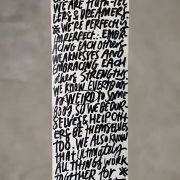 WE ARE TRUTH-TEL
LERS & DREAMERS.
WE'RE PERFECTLY
IMPERFECT... EMBR
ACING EACH OTHERS
WEAKNESSES AND
EMBRACING EACH
OTHERS STRENGTHS
WE KNOW EVERYBODY
IS WEIRD TO SOME
BODY SO WE BE OUR
SELVES & HELP OTH
ERS BE THEMSELVES
TOO. WE ALSO KNOW
THAT ULTIMATELY
ALL THINGS WORK
TOGETHER FOR